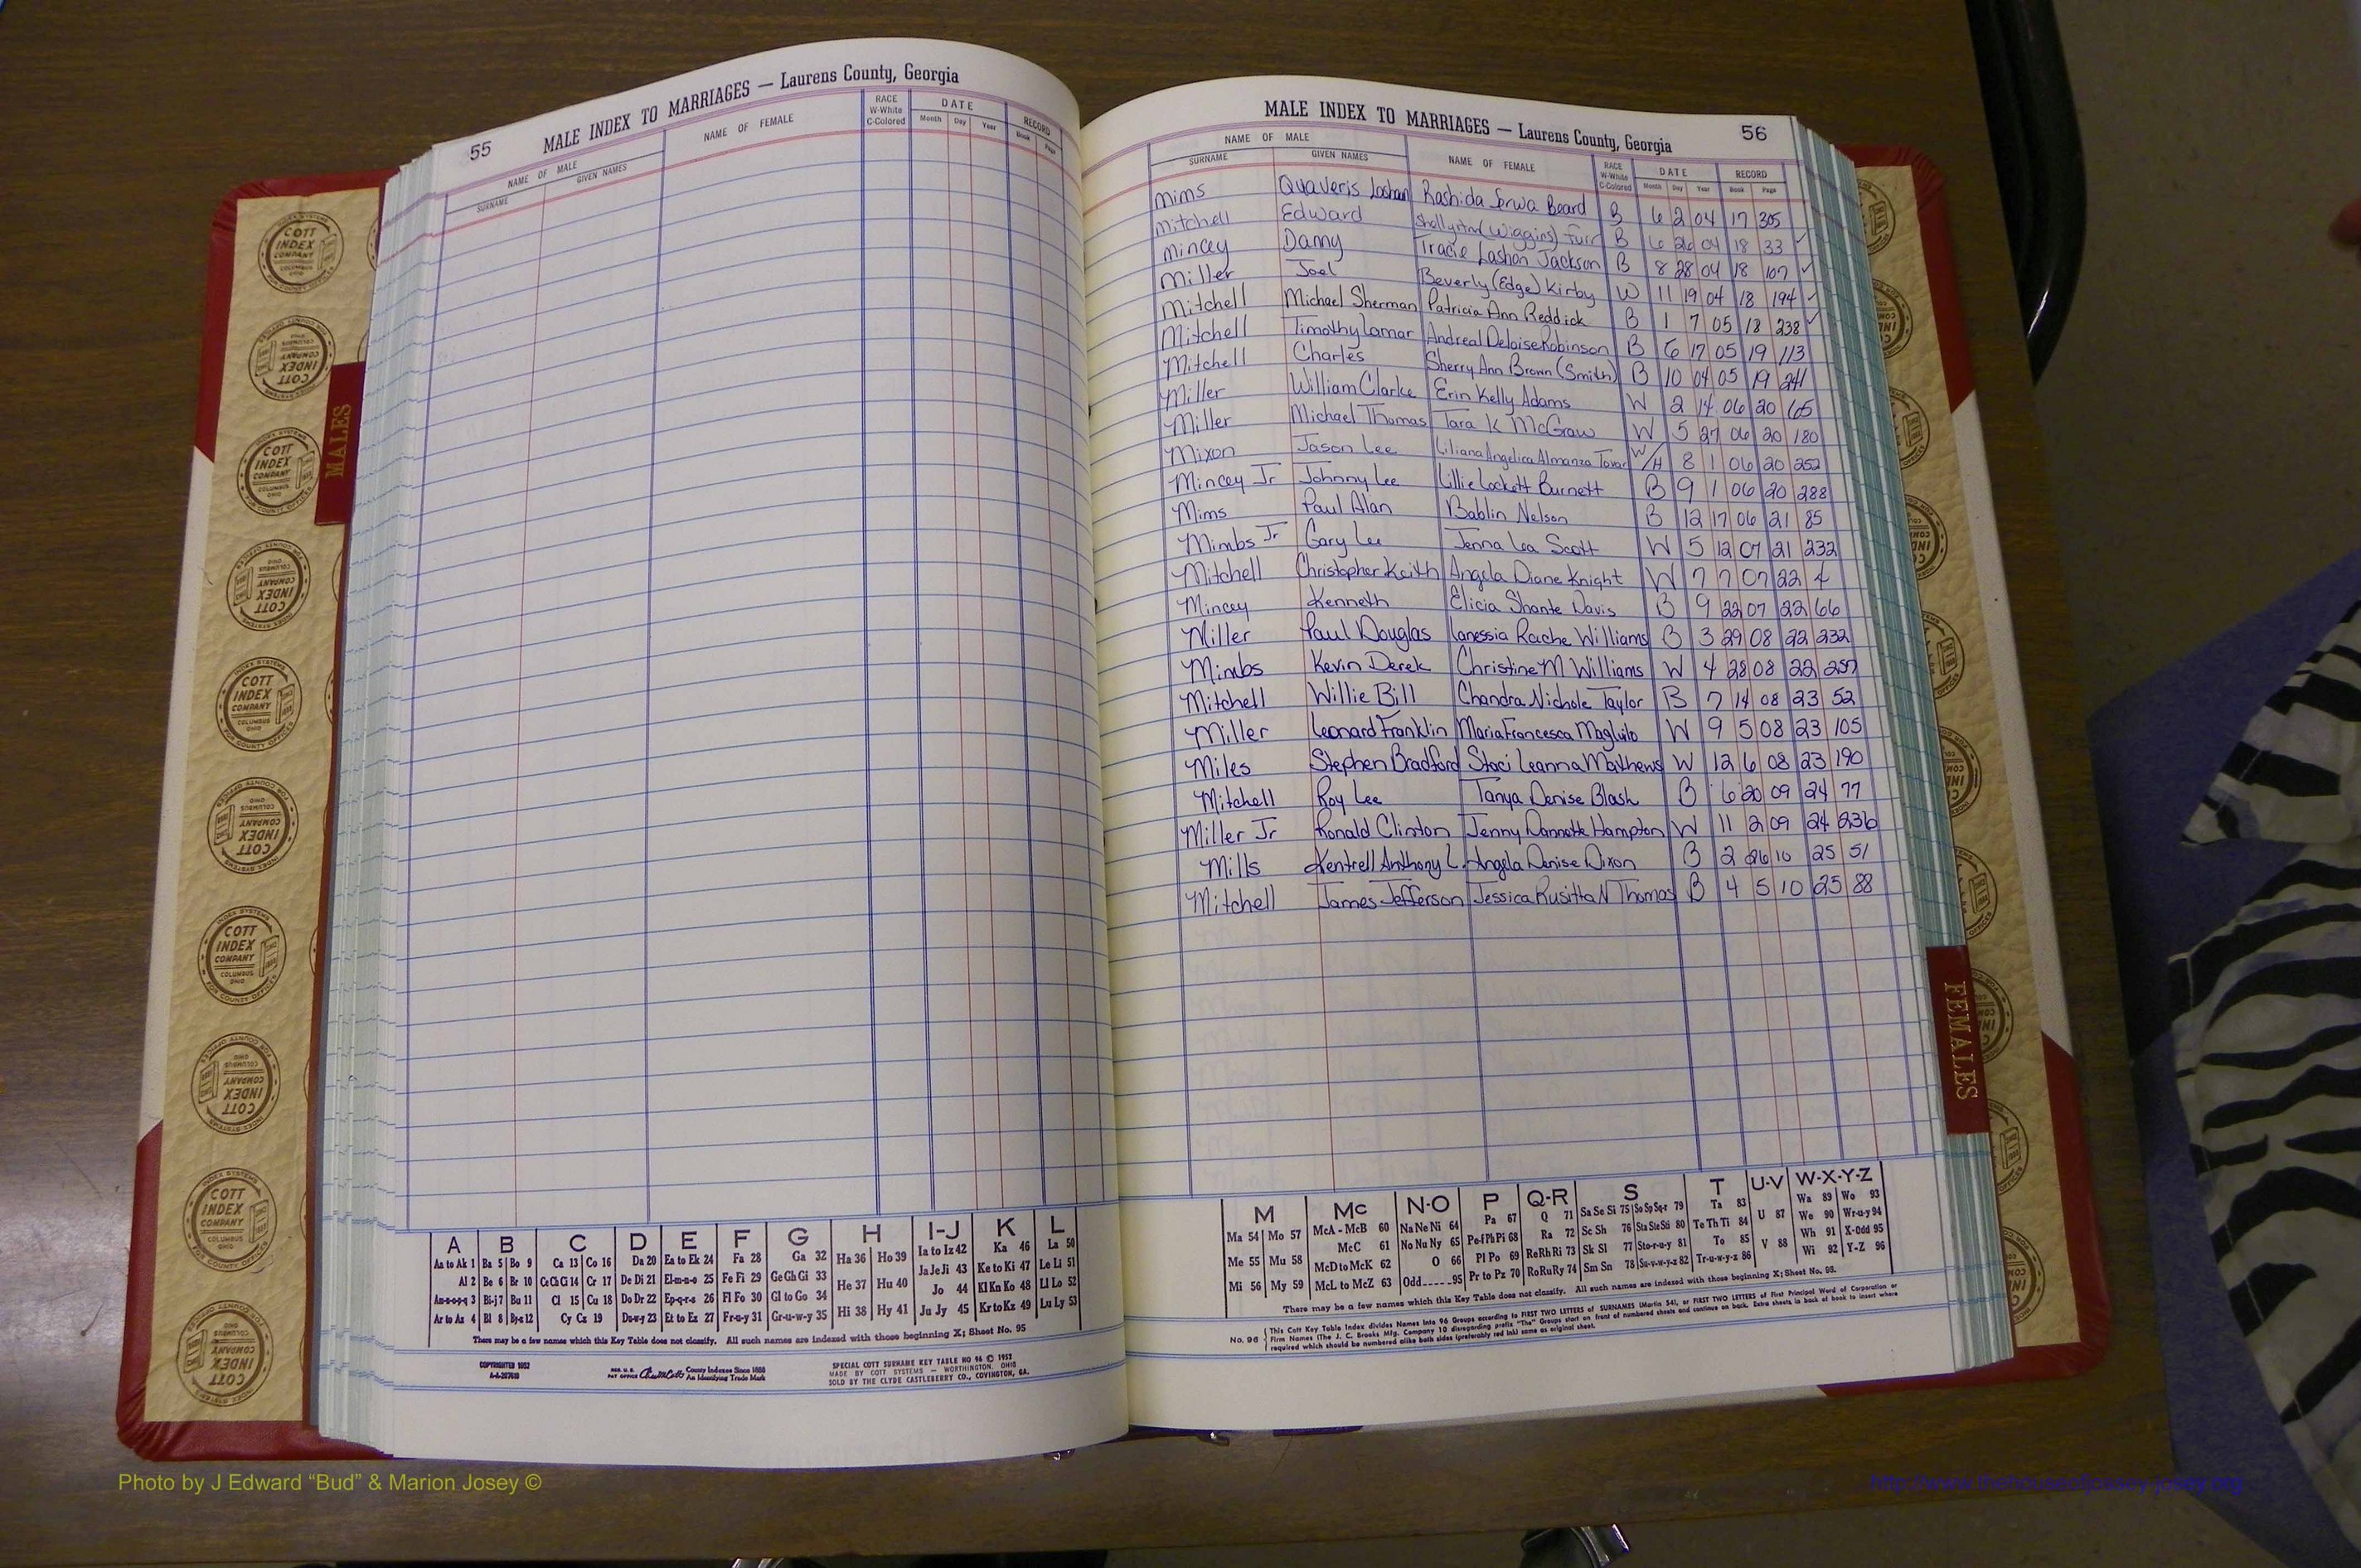 55 MALE INDEX TO MARRIAGES — Laurens County, Georgia
NAME OF MALE NAME OF FEMALE RACE DATE RECORD
SURNAME GIVEN NAMES W-White C-Colored Month Day Year Book Page
A B C D E F G H I-J K L
Aa to Ak 1 Ba 5 Bo 9 Ca 13 Co 16 Da 20 Ea to Ek 24 Fa 28 Ga 32 Ha 36 Ho 39 Ia to Iz 42 Ka 46 La 50
Al 2 Be 6 Br 10 Ce Ch Ci 14 Cr 17 De Di 21 El-m-n-o 25 Fe Fi 29 Ge Gh Gi 33 He 37 Hu 40 Ja Je Ji 43 Ke to Ki 47 Le Li 51
Am-n-o-p-q 3 Bi-j 7 Bu 11 Cl 15 Cu 18 Do Dr 22 Ep-q-r-s 26 Fl Fo 30 Gl to Go 34 Hi 38 Hy 41 Jo 44 Kl Kn Ko 48 Ll Lo 52
Ar to Az 4 Bl 8 By-z 12 Cy Cz 19 Du-w-y 23 Et to Ez 27 Fr-u-y 31 Gr-u-w-y 35 Ju Jy 45 Kr to Kz 49 Lu Ly 53
There may be a few names which this Key Table does not classify. All such names are indexed with those beginning X; Sheet No. 95
COPYRIGHTED 1952
REG. U.S. PAT OFFICE County Indexes Since 1888
An Identifying Trade Mark
SPECIAL COTT SURNAME KEY TABLE NO 96 © 1952
MADE BY COTT SYSTEMS — WORTHINGTON, OHIO
SOLD BY THE CLYDE CASTLEBERRY CO., COVINGTON, GA.
MALE INDEX TO MARRIAGES — Laurens County, Georgia 56
NAME OF MALE NAME OF FEMALE RACE DATE RECORD
SURNAME GIVEN NAMES W-White C-Colored Month Day Year Book Page
Mims Quaveris Lashan Rashida Serwa Beard B 6 2 04 17 305
Mitchell Edward (Wiggins) Furr B 6 26 04 18 33 ✓
Mincey Danny Tracie Lashon Jackson B 8 28 04 18 107 ✓
Miller Joel Beverly (Edge) Kirby W 11 19 04 18 194 ✓
Mitchell Michael Sherman Patricia Ann Reddick B 1 7 05 18 238 ✓
Mitchell Timothy Lamar Andreal Deloise Robinson B 6 17 05 19 113
Mitchell Charles Sherry Ann Brown (Smith) B 10 04 05 19 241
Miller William Clarke Erin Kelly Adams W 2 14 06 20 65
Miller Michael Thomas Tara K McGraw W 5 27 06 20 180
Mixon Jason Lee Liliana Angelica Almanza Tovar W/H 8 1 06 20 252
Mincey Jr Johnny Lee Lillie Lockett Burnett B 9 1 06 20 288
Mims Paul Alan Bablin Nelson B 12 17 06 21 85
Mimbs Jr Gary Lee Jenna Lea Scott W 5 12 07 21 232
Mitchell Christopher Keith Angela Diane Knight W 7 7 07 22 4
Mincey Kenneth Elicia Shante Davis B 9 22 07 22 66
Miller Paul Douglas Lanessia Rache Williams B 3 29 08 22 232
Mimbs Kevin Derek Christine M Williams W 4 28 08 22 257
Mitchell Willie Bill Chandra Nichole Taylor B 7 14 08 23 52
Miller Leonard Franklin Maria Francesca Magliulo W 9 5 08 23 105
Miles Stephen Bradford Staci Leanna Mathews W 12 6 08 23 190
Mitchell Roy Lee Tanya Denise Blash B 6 20 09 24 77
Miller Jr Ronald Clinton Jenny Dannette Hampton W 11 2 09 24 236
Mills Kentrell Anthony L. Angela Denise Dixon B 2 26 10 25 51
Mitchell James Jefferson Jessica Rusitta N Thomas B 4 5 10 25 88
M Mc N-O P Q-R S T U-V W-X-Y-Z
Ma 54 Mo 57 McA - McB 60 Na Ne Ni 64 Pa 67 Q 71 Sa Se Si 75 So Sp Sq-r 79 Ta 83 U 87 Wa 89 Wo 93
Me 55 Mu 58 McC 61 No Nu Ny 65 Pe-f Ph Pi 68 Ra 72 Sc Sh 76 Sta Ste Sti 80 Te Th Ti 84 V 88 We 90 Wr-u-y 94
Mi 56 My 59 McD to McK 62 O 66 Pl Po 69 Re Rh Ri 73 Sk Sl 77 Sto-r-u-y 81 To 85 Wh 91 X-Odd 95
McL to McZ 63 Odd 95 Pr to Pz 70 Ro Ru Ry 74 Sm Sn 78 Su-v-w-y-z 82 Tr-u-w-y-z 86 Wi 92 Y-Z 96
There may be a few names which this Key Table does not classify. All such names are indexed with those beginning X; Sheet No. 95.
No. 96 This Cott Key Table Index divides Names into 96 Groups according to FIRST TWO LETTERS of SURNAMES (Martin 54), or FIRST TWO LETTERS of First Principal Word of Corporation or
Firm Names (The J. C. Brooks Mfg. Company 10 disregarding prefix "The" Groups start on front of numbered sheets and continue on back. Extra sheets in back of book to insert where
required which should be numbered alike both sides (preferably red ink) same as original sheet.
MALES
FEMALES
INDEX SYSTEMS
COTT INDEX COMPANY
COLUMBUS OHIO
FOR COUNTY OFFICES
Photo by J Edward “Bud” & Marion Josey ©
http://www.thehouseofjossey-josey.org